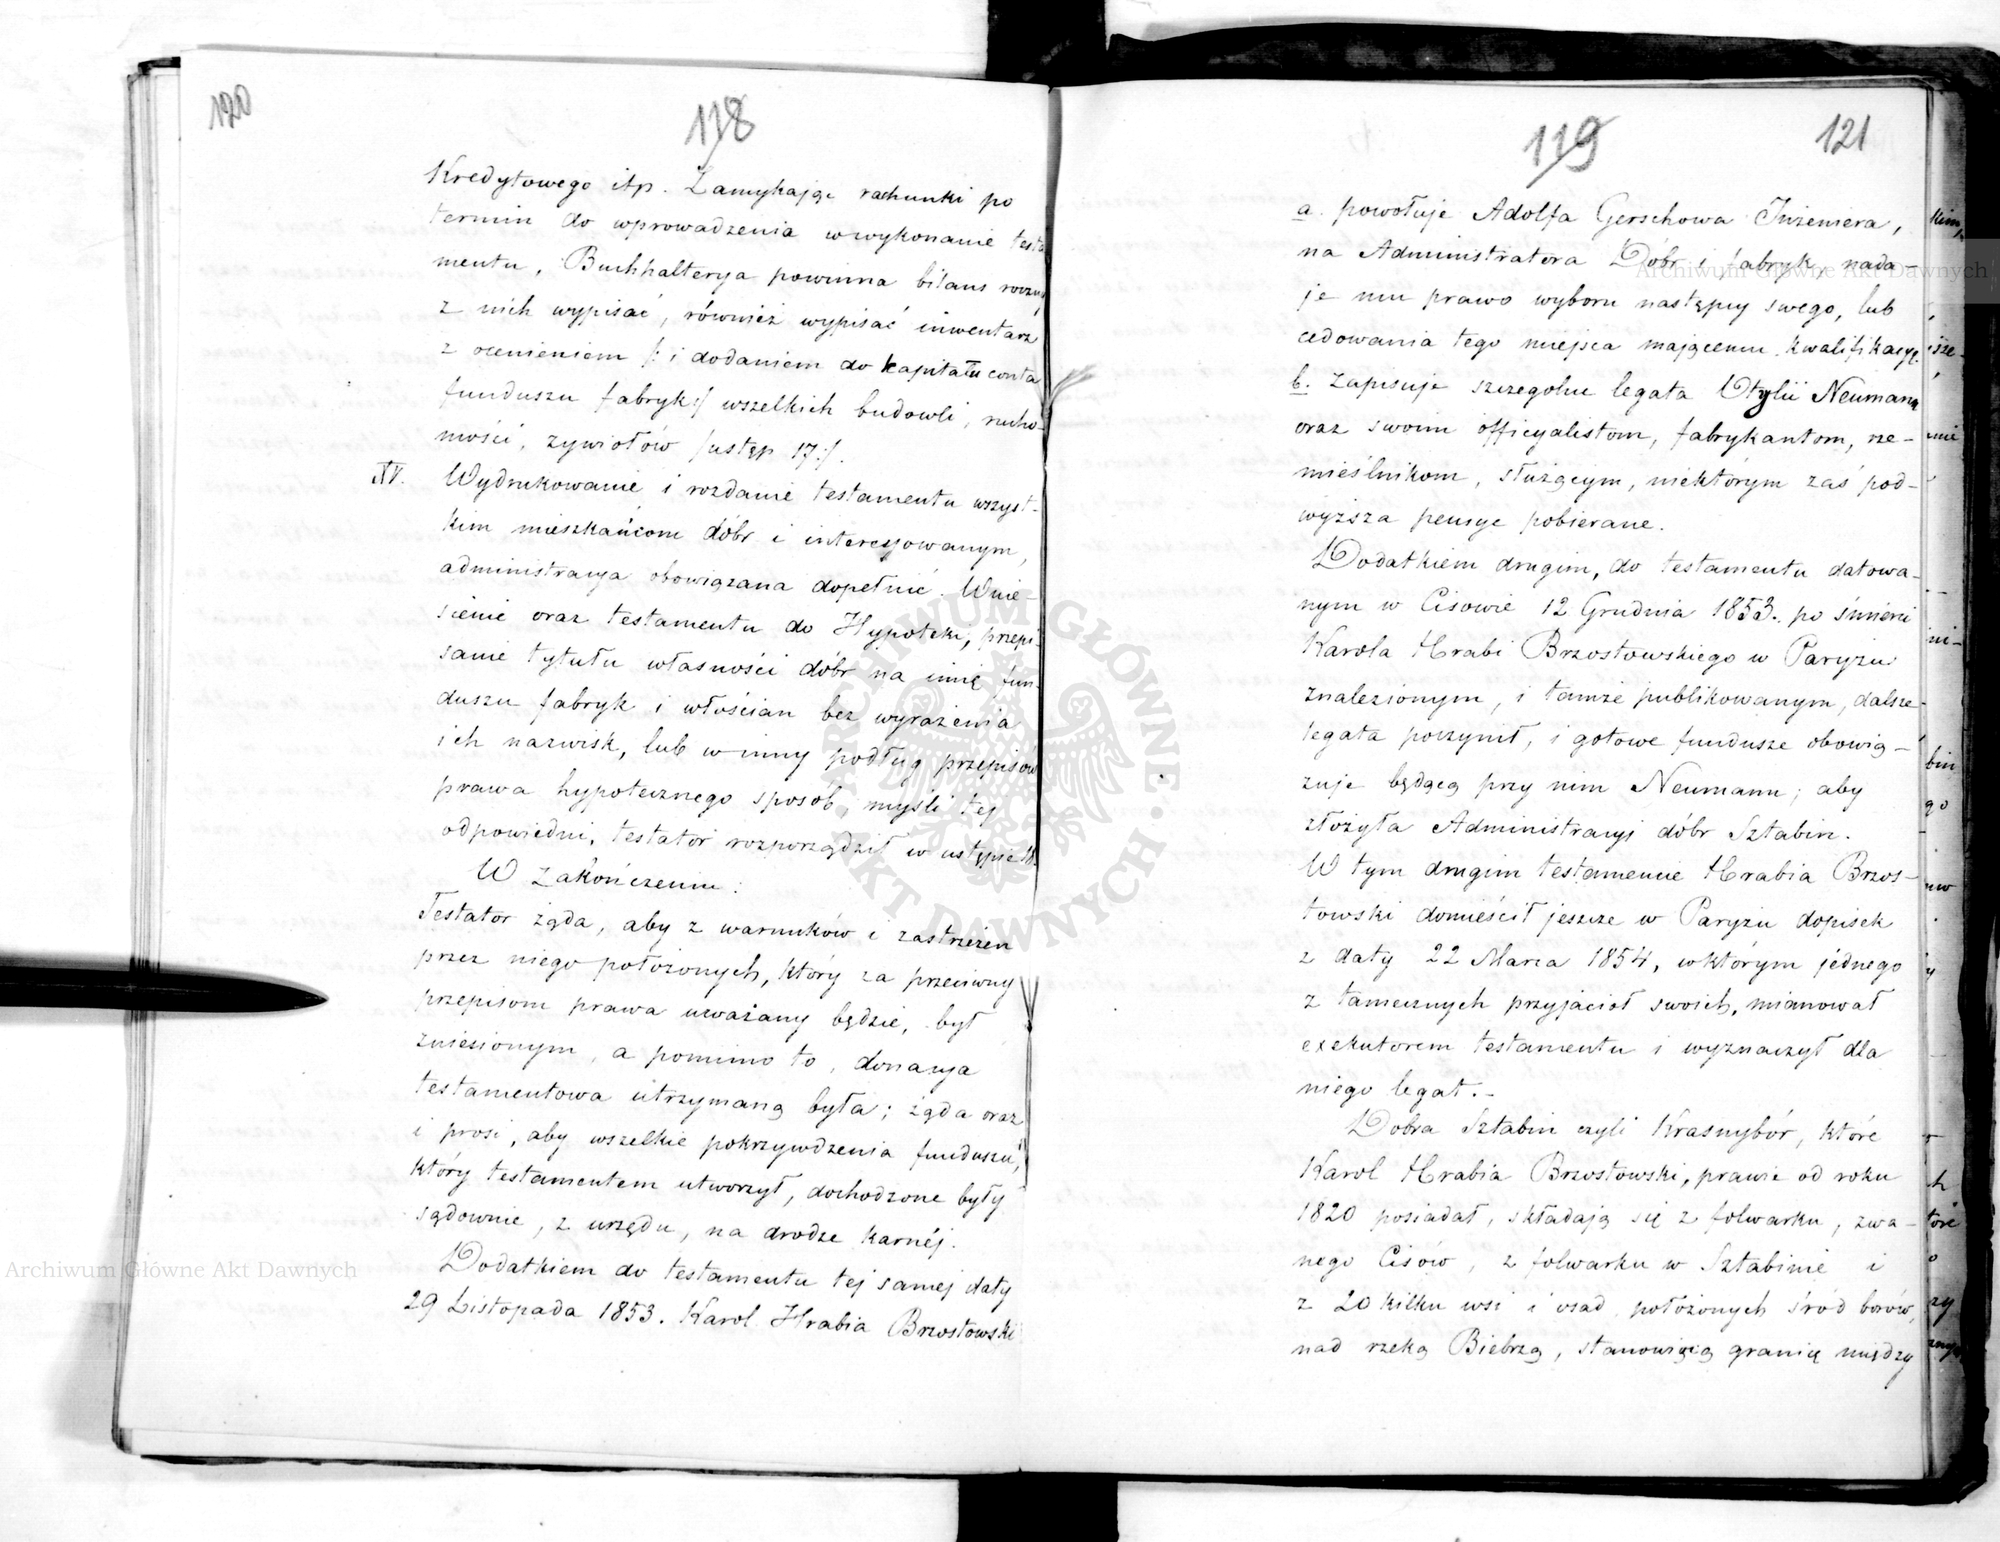 120
118
Kredytowego itp. Zamykając rachunki po
termin do wprowadzenia w wykonanie testa
mentu, Buchhalterya powinna bilans roczny
z nich wypisać, również wypisać inwentarz
z ocenieniem /: i dodaniem do kapitału conta
funduszu fabryk :/ wszelkich budowli, rucho-
mości, żywiołów /ustęp 17:/.
XV. Wydrukowanie i rozdanie testamentu wszyst-
kim mieszkańcom dóbr i interesowanym,
administracya obowiązana dopełnić. Wnie-
sienie oraz testamentu do Hypoteki, przepi-
sanie tytułu własności dóbr na imię fun-
duszu fabryk i włościan bez wyrażenia
ich nazwisk, lub w inny podług przepisów
prawa hypotecznego sposób, myśli tej
odpowiedni, testator rozporządził w ustępie 18.
W zakończeniu:
Testator żąda, aby z warunków i zastrzeżeń
przez niego położonych, który za przeciwny
przepisom prawa uważany będzie, był
zniesionym, a pomimo to, donacya
testamentowa utrzymaną była; żąda oraz
i prosi, aby wszelkie pokrzywdzenia funduszu,
który testamentem utworzył, dochodzone były
sądownie, z urzędu, na drodze karnéj.
Dodatkiem do testamentu tej samej daty
29 Listopada 1853. Karol Hrabia Brzostowski
119
121
a. powołuje Adolfa Gerschowa Inżeniera,
na Administratora Dóbr i fabryk, nada-
je mu prawo wyboru następcy swego, lub
cedowania tego miejsca mającemu kwalifikacyę.
b. Zapisuje szczególne legata Otylii Neumann
oraz swoim officyalistom, fabrykantom, rze-
mieślnikom, służącym, niektórym zaś pod-
wyższa pensye pobierane.
Dodatkiem drugim, do testamentu datowa-
nym w Cisowie 12 Grudnia 1853. po śmierci
Karola Hrabi Brzostowskiego w Paryżu
znalezionym, i tamże publikowanym, dalsze
legata poczynił, i gotowe fundusze obowią-
zuje będącą przy nim Neumann; aby
złożyła Administracyi dóbr Sztabin.
W tym drugim testamencie Hrabia Brzos-
towski domieścił jeszcze w Paryżu dopisek
z daty 22 Marca 1854, w którym jednego
z tamecznych przyjaciół swoich, mianował
exekutorem testamentu i wyznaczył dla
niego legat.-
Dobra Sztabin czyli Krasnybór, które
Karol Hrabia Brzostowski, prawie od roku
1820 posiadał, składają się z folwarku, zwa-
nego Cisów, z folwarku w Sztabinie i
z 20 kilku wsi i osad położonych śród borów,
nad rzeką Biebrzą, stanowiącą granicę między
Archiwum Główne Akt Dawnych
Archiwum Główne Akt Dawnych
ARCHIWUM GŁÓWNE AKT DAWNYCH